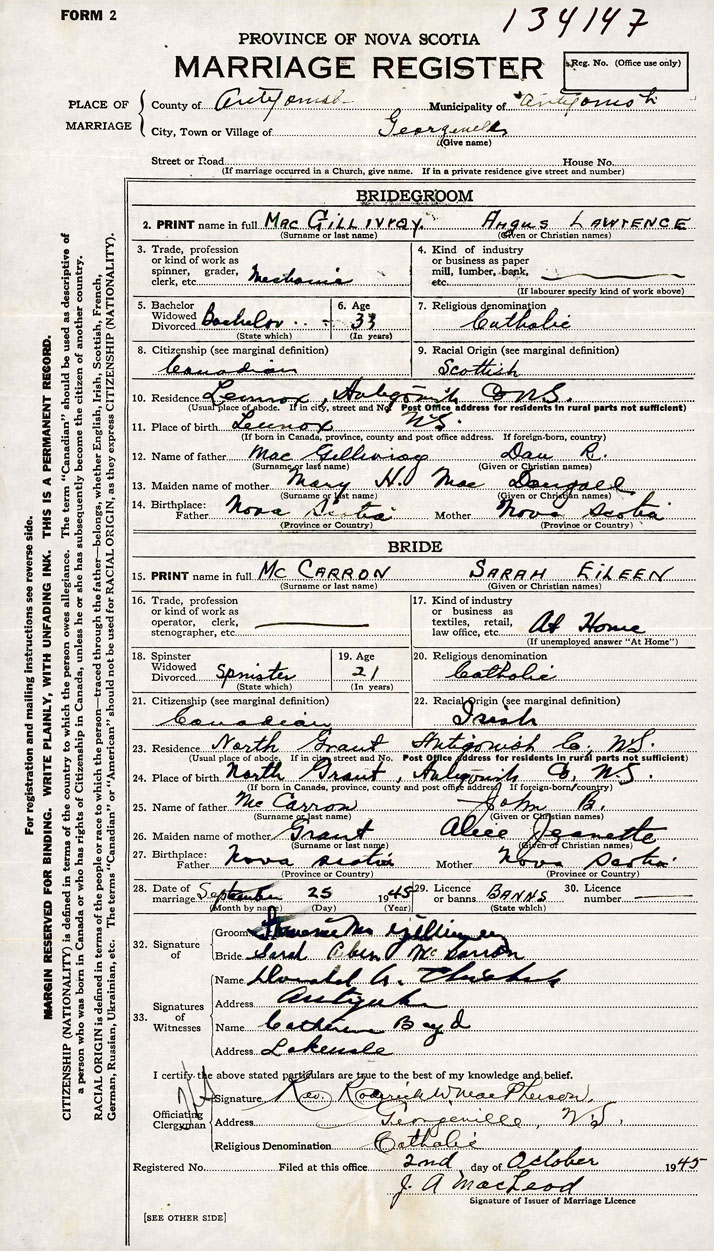 FORM 2
134147
PROVINCE OF NOVA SCOTIA
MARRIAGE REGISTER
Reg. No. (Office use only)
PLACE OF MARRIAGE
County of Antigonish Municipality of Antigonish
City, Town or Village of Georgeville
(Give name)
Street or Road House No.
(If marriage occurred in a Church, give name. If in a private residence give street and number)
BRIDEGROOM
2. PRINT name in full MacGILLIVRAY. ANGUS LAWRENCE
(Surname or last name) (Given or Christian names)
3. Trade, profession or kind of work as spinner, grader, clerk, etc. Mechanic
4. Kind of industry or business as paper mill, lumber, bank, etc.
(If labourer specify kind of work above)
5. Bachelor Widowed Divorced Bachelor
(State which)
6. Age 33
(In years)
7. Religious denomination Catholic
8. Citizenship (see marginal definition) Canadian
9. Racial Origin (see marginal definition) Scottish
10. Residence Lennox, Antigonish Co N.S.
(Usual place of abode. If in city, street and No. Post Office address for residents in rural parts not sufficient)
11. Place of birth Lennox N.S.
(If born in Canada, province, county and post office address. If foreign-born, country)
12. Name of father MacGillivray Dan R.
(Surname or last name) (Given or Christian names)
13. Maiden name of mother Mary H. MacDougall
(Surname or last name) (Given or Christian names)
14. Birthplace: Father Nova Scotia Mother Nova Scotia
(Province or Country) (Province or Country)
BRIDE
15. PRINT name in full McCARRON SARAH EILEEN
(Surname or last name) (Given or Christian names)
16. Trade, profession or kind of work as operator, clerk, stenographer, etc.
17. Kind of industry or business as textiles, retail, law office, etc. At Home
(If unemployed answer "At Home")
18. Spinster Widowed Divorced Spinister
(State which)
19. Age 21
(In years)
20. Religious denomination Catholic
21. Citizenship (see marginal definition) Canadian
22. Racial Origin (see marginal definition) Irish
23. Residence North Grant Antigonish Co, N.S.
(Usual place of abode. If in city street and No. Post Office address for residents in rural parts not sufficient)
24. Place of birth North Grant, Antigonish Co, N.S.
(If born in Canada, province, county and post office address. If foreign-born, country)
25. Name of father McCarron John B.
(Surname or last name) (Given or Christian names)
26. Maiden name of mother Grant Alice Jeanette
(Surname or last name) (Given or Christian names)
27. Birthplace: Father Nova Scotia Mother Nova Scotia
(Province or Country) (Province or Country)
28. Date of marriage September 25 1945
(Month by name) (Day) (Year)
29. Licence or banns BANNS
(State which)
30. Licence number
32. Signature of
Groom
Bride Sarah McCarron
33. Signatures of Witnesses
Name Donald
Address Antigonish
Name Catherine Boyd
Address Lakevale
I certify the above stated particulars are true to the best of my knowledge and belief.
Officiating Clergyman
Signature Rev. Roderick W. MacPherson.
Address Georgeville, N.S.
Religious Denomination Catholic
Registered No. Filed at this office 2nd day of October 1945
J. A MacLeod
Signature of Issuer of Marriage Licence
[SEE OTHER SIDE]
For registration and mailing instructions see reverse side.
MARGIN RESERVED FOR BINDING. WRITE PLAINLY, WITH UNFADING INK. THIS IS A PERMANENT RECORD.
CITIZENSHIP (NATIONALITY) is defined in terms of the country to which the person owes allegiance. The term "Canadian" should be used as descriptive of
a person who was born in Canada or who has rights of Citizenship in Canada, unless he or she has subsequently become the citizen of another country.
RACIAL ORIGIN is defined in terms of the people or race to which the person—traced through the father—belongs, whether English, Irish, Scottish, French,
German, Russian, Ukrainian, etc. The terms "Canadian" or "American" should not be used for RACIAL ORIGIN, as they express CITIZENSHIP (NATIONALITY).